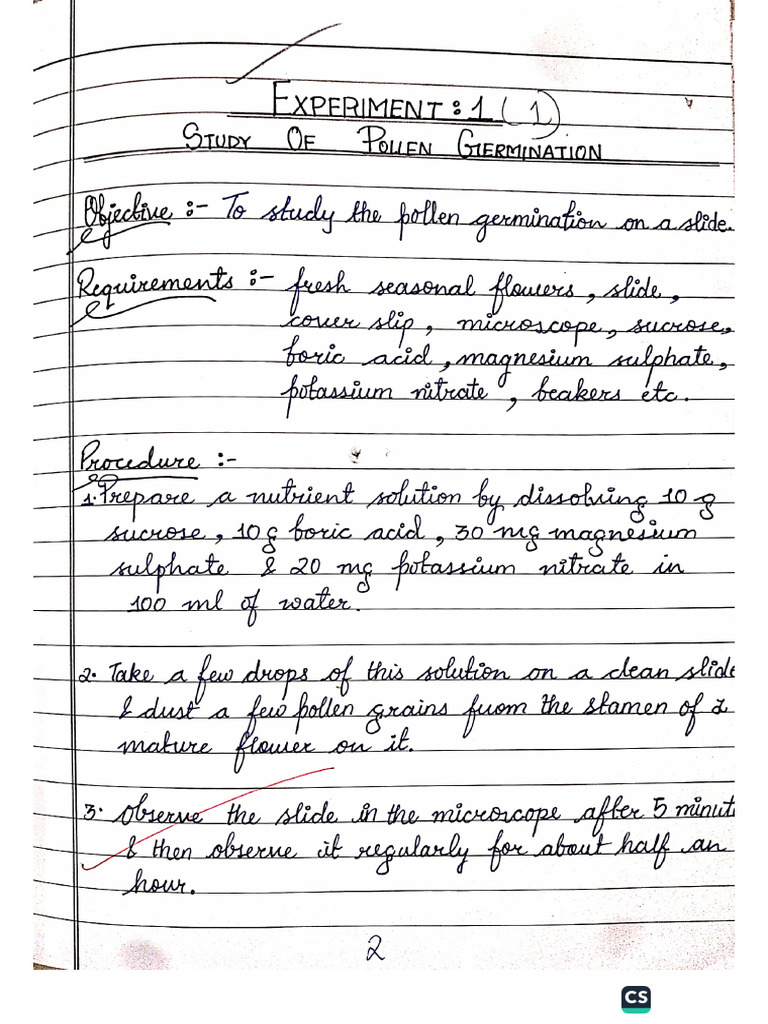 EXPERIMENT: 1 (1)
STUDY OF POLLEN GERMINATION
Objective :- To study the pollen germination on a slide.
Requirements :- fresh seasonal flowers, slide,
cover slip, microscope, sucrose,
boric acid, magnesium sulphate,
potassium nitrate, beakers etc.
Procedure :-
1. Prepare a nutrient solution by dissolving 10 g
sucrose, 10 g boric acid, 30 mg magnesium
sulphate & 20 mg potassium nitrate in
100 ml of water.
2. Take a few drops of this solution on a clean slide
& dust a few pollen grains from the stamen of a
mature flower on it.
3. Observe the slide in the microscope after 5 minut
& then observe it regularly for about half an
hour.
2
CS